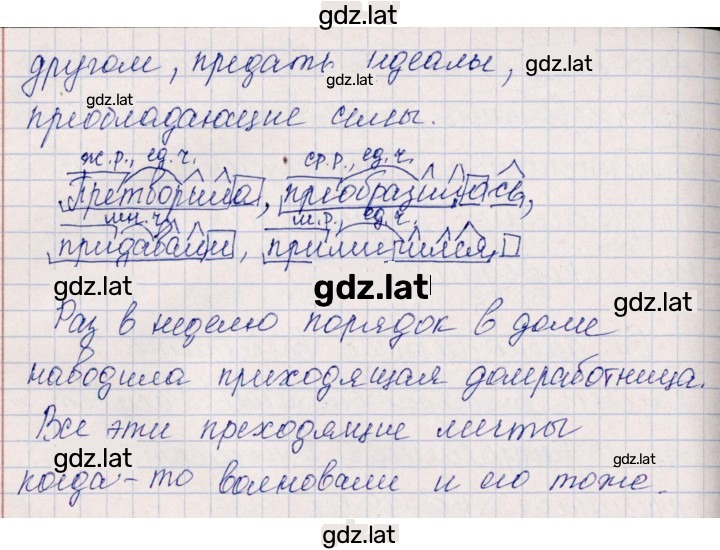 gdz.lat
другом, предать идеалы,
gdz.lat
gdz.lat
преобладающие силы.
ж.р., ед.ч. ср.р., ед.ч.
Претворила, преобразилась,
мн.ч. м.р., ед.ч.
придавали, приличился
gdz.lat gdz.lat gdz.lat
Раз в неделю порядок в доме
наводила приходящая домработница.
Все эти преходящие мечты
gdz.lat gdz.lat
когда-то волновали и его тоже.
gdz.lat